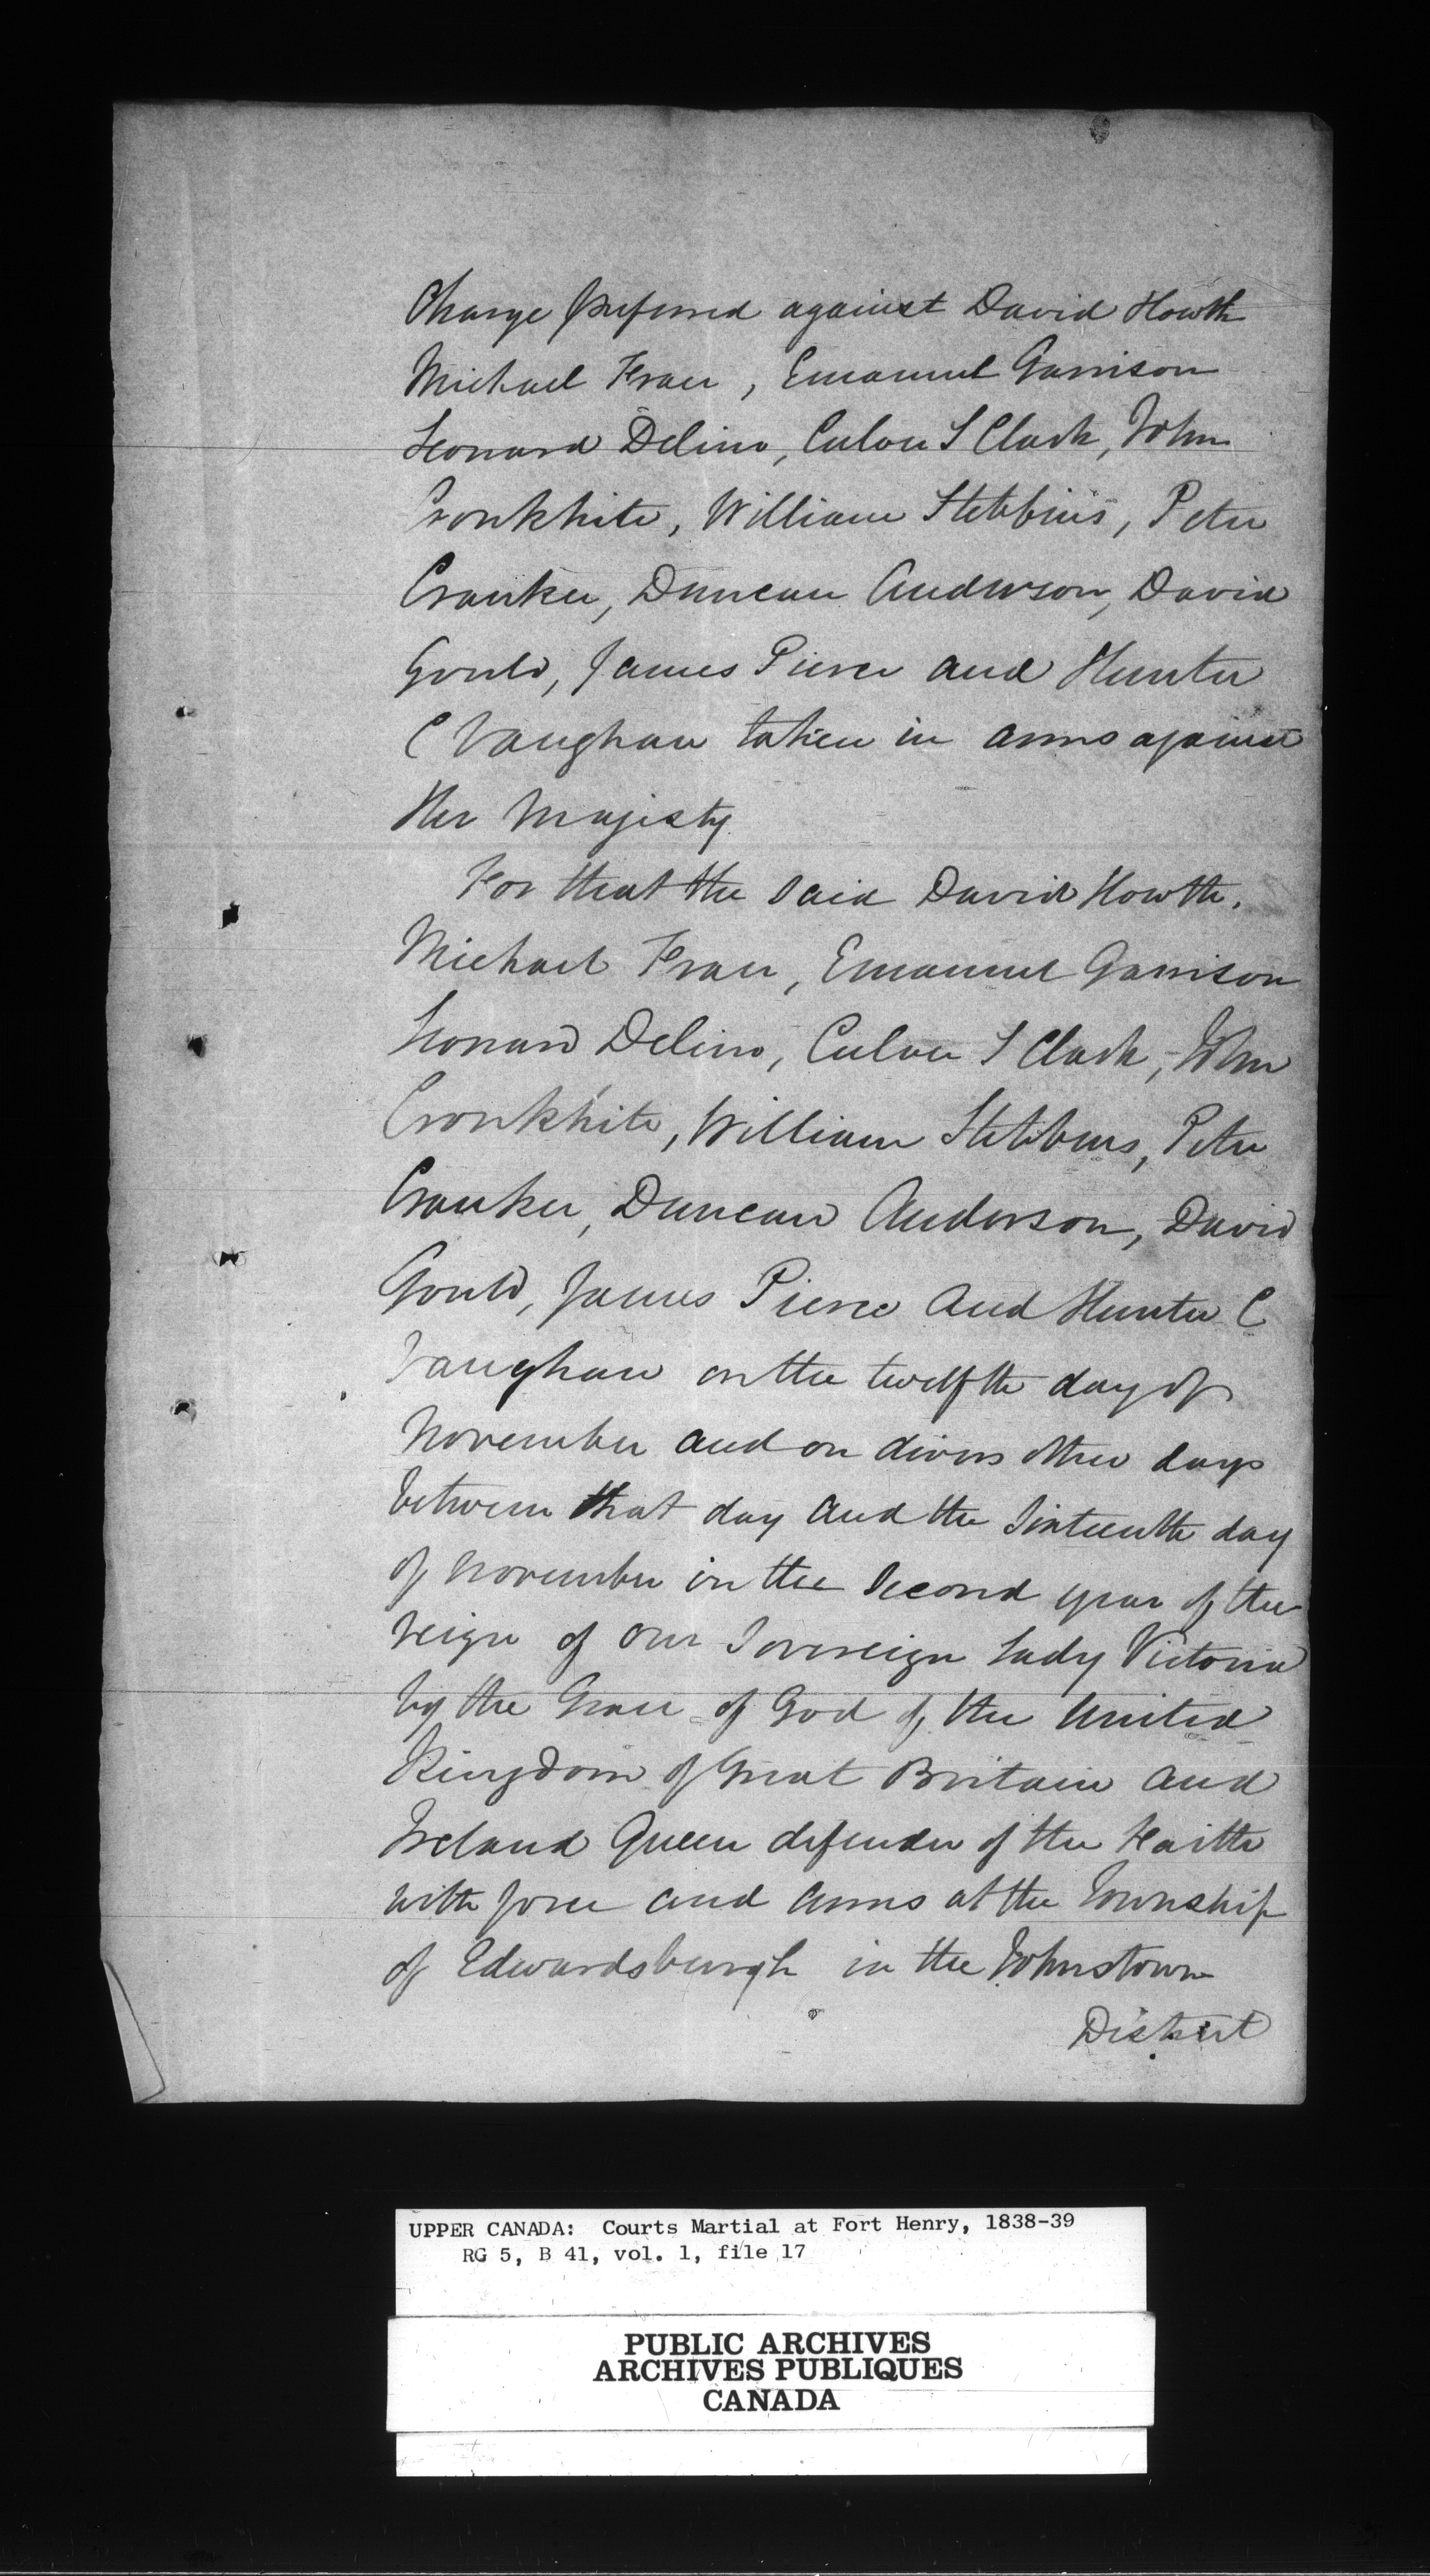 Charge preferred against David Howth
Michael Fraer, Emanuel Garrison
Leonard Delino, Culver S Clark, John
Cronkhite, William Stebbins, Peter
Cranker, Duncan Anderson, David
Gould, James Pierce and Hunter
C Vaughan taken in arms against
Her Majesty
For that the said David Howth.
Michael Fraer, Emanuel Garrison
Leonard Delino, Culver S Clark, John
Cronkhite, William Stebbins, Peter
Cranker, Duncan Anderson, David
Gould, James Pierce and Hunter C
Vaughan on the twelfth day of
November and on divers other days
between that day and the Sixteenth day
of November in the Second year of the
reign of our Sovereign Lady Victoria
by the Grace of God of the United
Kingdom of Great Britain and
Ireland Queen defender of the Faith
with force and arms at the Township
of Edwardsburgh in the Johnstown
District
UPPER CANADA: Courts Martial at Fort Henry, 1838-39
RG 5, B 41, vol. 1, file 17
PUBLIC ARCHIVES
ARCHIVES PUBLIQUES
CANADA